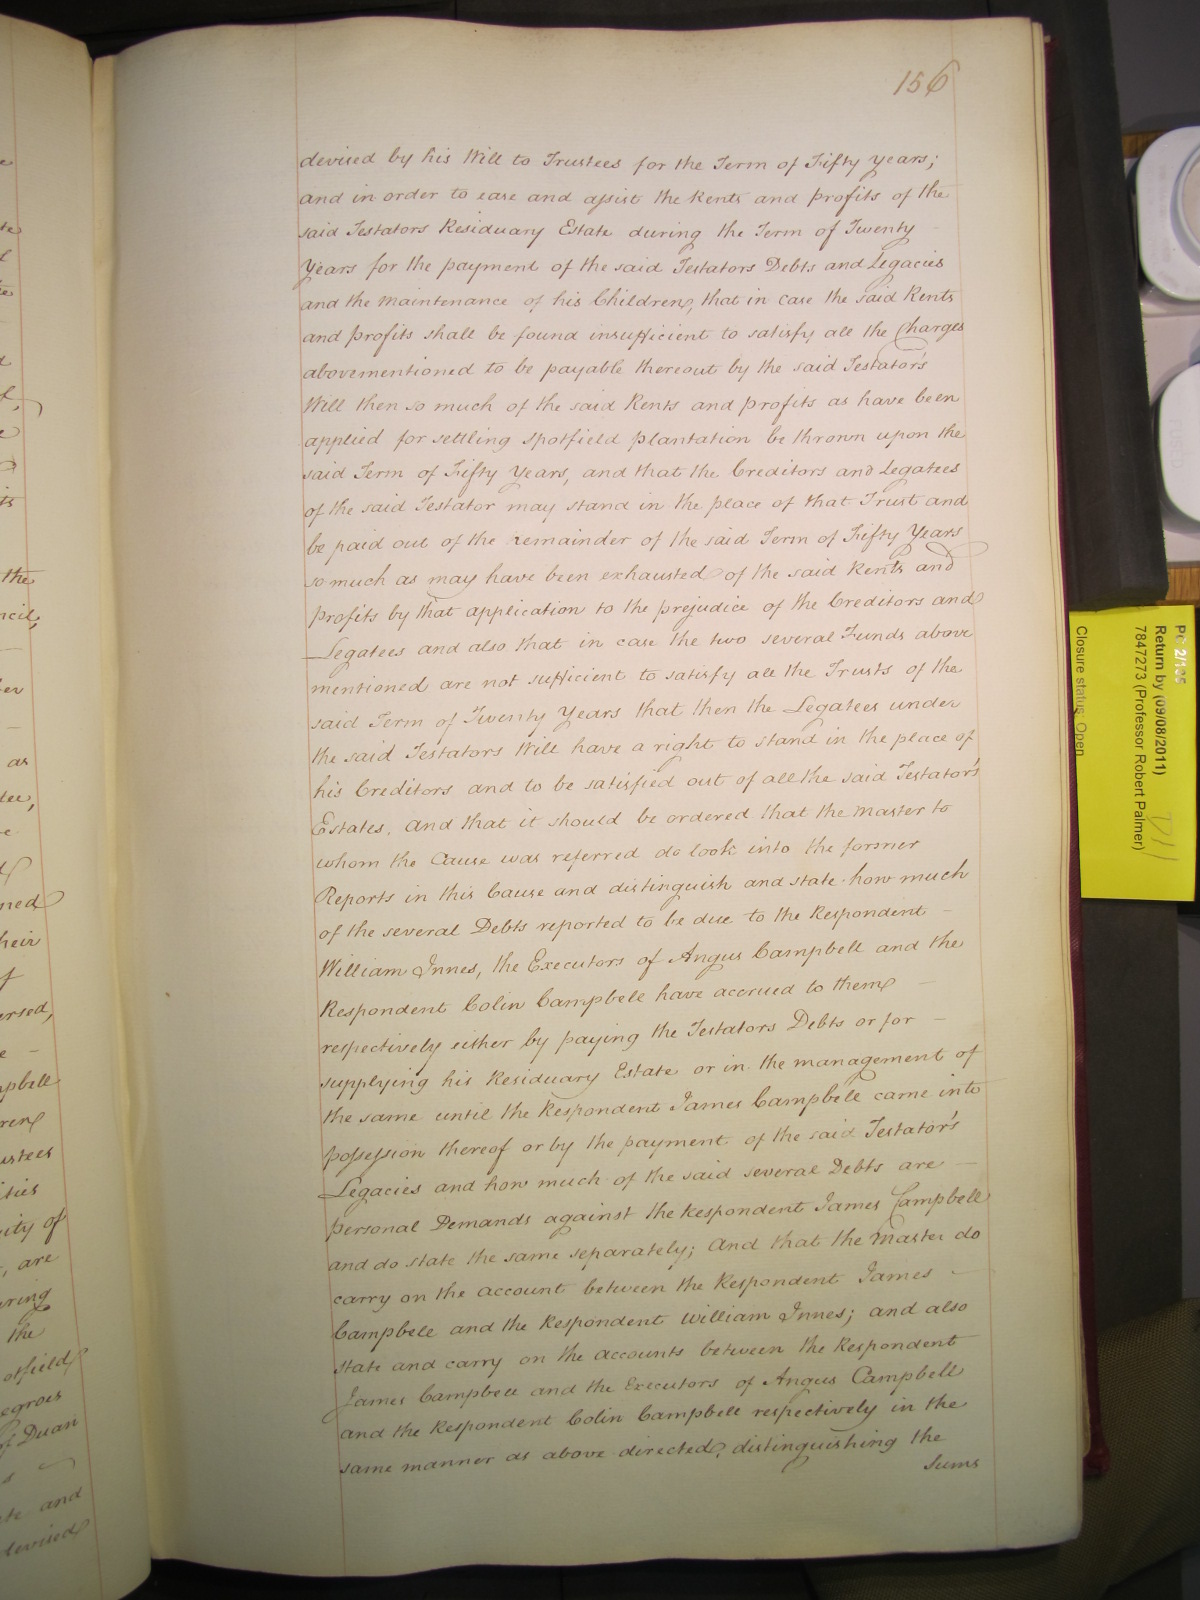 156
devised by his Will to Trustees for the Term of Fifty years;
and in order to ease and assist the Rents and profits of the
said Testators Residuary Estate during the Term of Twenty
Years for the payment of the said Testators Debts and Legacies
and the Maintenance of his Children, that in case the said Rents
and profits shall be found insufficient to satisfy all the Charges
abovementioned to be payable thereout by the said Testator's
Will then so much of the said Rents and profits as have been
applied for settling Spotfield plantation be thrown upon the
said Term of Fifty Years, and that the Creditors and Legatees
of the said Testator may stand in the place of that Trust and
be paid out of the remainder of the said Term of Fifty Years
so much as may have been exhausted of the said Rents and
profits by that application to the prejudice of the Creditors and
Legatees and also that in case the two several Funds above
mentioned are not sufficient to satisfy all the Trusts of the
said Term of Twenty Years that then the Legatees under
the said Testators Will have a right to stand in the place of
his Creditors and to be satisfied out of all the said Testator's
Estates. And that it should be ordered that the Master to
whom the Cause was referred do look into the former
Reports in this Cause and distinguish and state how much
of the several Debts reported to be due to the Respondent –
William Innes, the Executors of Angus Campbell and the
Respondent Colin Campbell have accrued to them –
respectively either by paying the Testators Debts or for –
supplying his Residuary Estate or in the management of
the same until the Respondent James Campbell came into
possession thereof or by the payment of the said Testator's
Legacies and how much of the said several Debts are –
personal Demands against the Respondent James Campbell
and do state the same separately; And that the Master do
carry on the account between the Respondent James –
Campbell and the Respondent William Innes; and also
state and carry on the accounts between the Respondent
James Campbell and the Executors of Angus Campbell
and the Respondent Colin Campbell respectively in the
same manner as above directed, distinguishing the
Sums
the
as
ned
heir
of
ersed,
pbell
ustees
ity of
, are
the
otfield
egroes
Duan
and
devised
PC 2/135
Return by (09/08/2011)
7847273 (Professor Robert Palmer)
Closure status: Open